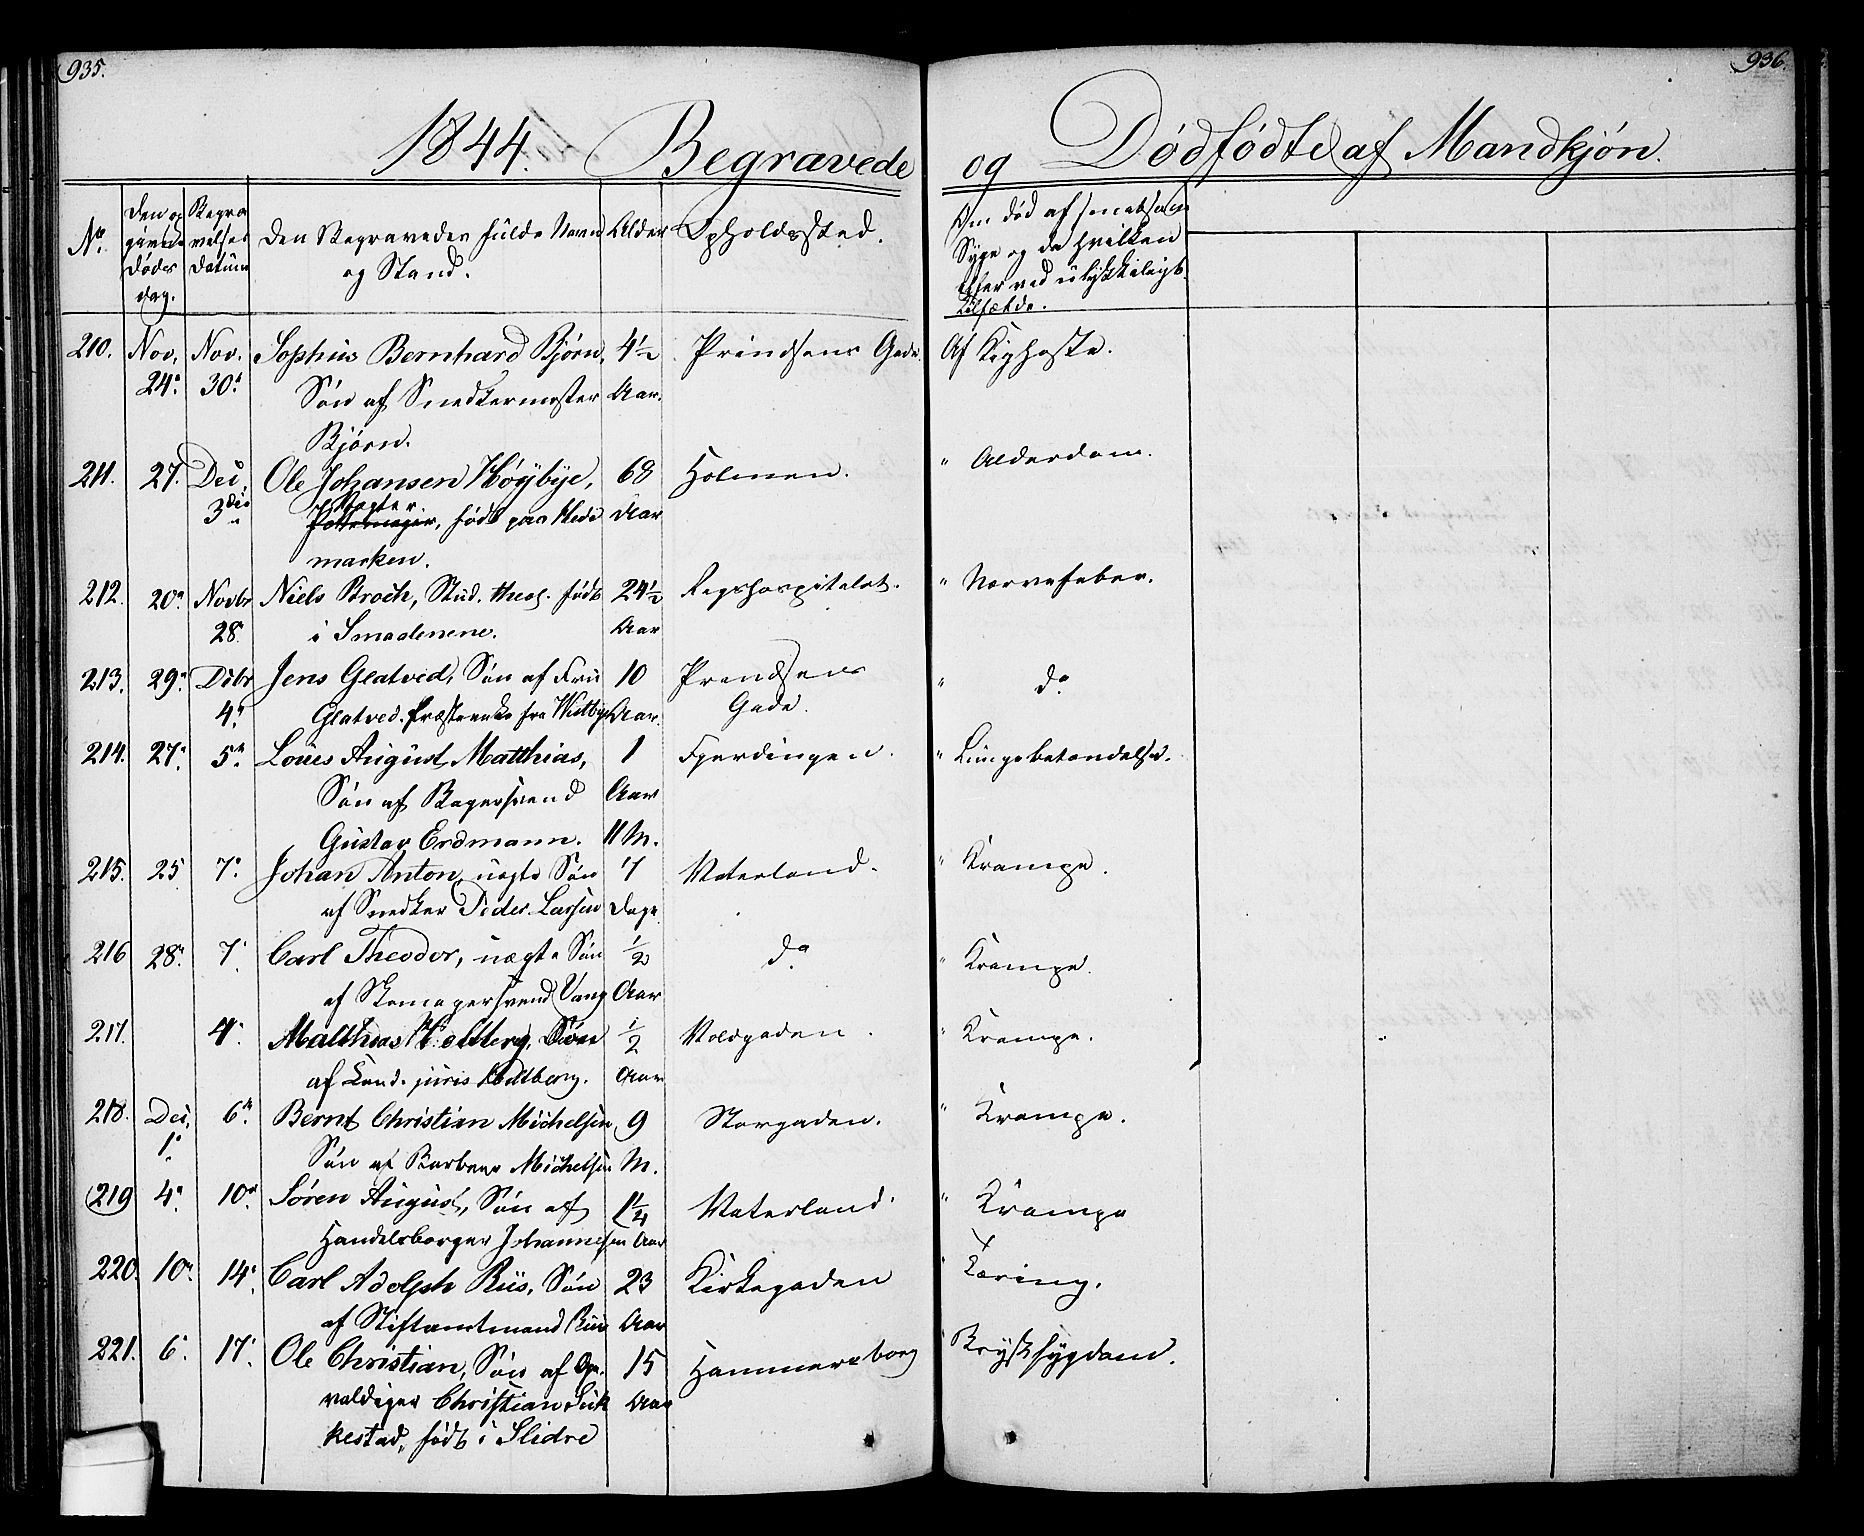 935.
936.
1844. Begravede og Dødfødte af Mandkjøn.
No. Den opgivne Døds dag. Begravelses Datum Den Begravedes fulde Navn og Stand. Alder Opholdssted. Om død af smitsom Syge og da hvilken eller ved ulykkeligt Tilfælde.
210. Nov. 24. Nov. 30. Sophus Bernhard Bjørn, 4½ Prindsens Gade. Af Kighoste.
Søn af Snedkermester Aar.
Bjørn.
211. 27. Dec. 3die Ole Johansen Høybye, 68 Holmen. " Alderdom.
Vægter, født paa Hede Aar
marken.
212. 20. Novbr 28. Niels Broch, Stud. theol. født 24½ Rigshospitalet. " Nervefeber.
i Smaalenene. Aar
213. 29. Dcbr 4. Jens Glatved, Søn af Fru 10 Prindsens " do
Glatved. Præsteenke fra Aar. Gade.
214. 27. 5. Louis August Matthias, 1 Fjerdingen. " Lungebetændelse.
Søn af Bagersvend Aar
Gustav Erdmann. 11 M.
215. 25 7. Johan Anton, uægte Søn 7 Vaterland. " Krampe.
af Snedker Peder Larsen Dage
216 28. 7. Carl Theodor, uægte Søn ½ do " Krampe.
af Skomagersvend Vang Aar
217. 4. Matthias, Søn ½ Voldgaden. " Krampe.
af Cand. juris Aar
218. Dec. 1. 6. Bernt Christian Michelsen, 9 Storgaden. " Krampe.
Søn af Barbeer Michelsen M.
219 4. 10. Søren August, Søn af 1¼ Vaterland. " Krampe
Handelsborger Johannesen Aar
220. 10. 14. Carl Adolph Riis, Søn 23 Kirkegaden " Tæring.
af Stiftamtmand Riis Aar
221. 6. 17. Ole Christian, Søn af 15 Hammersborg Brystsygdom.
Christian Aar
født i Slidre